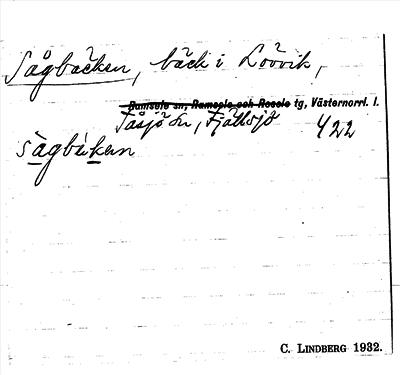 Sågbäcken, bäck i Lövvik,
Ramsele sn, Ramsele och Resele tg, Västernorrl. l.
Tåsjö sn, Fjällsjö 422
sàgbákan
C. LINDBERG 1932.